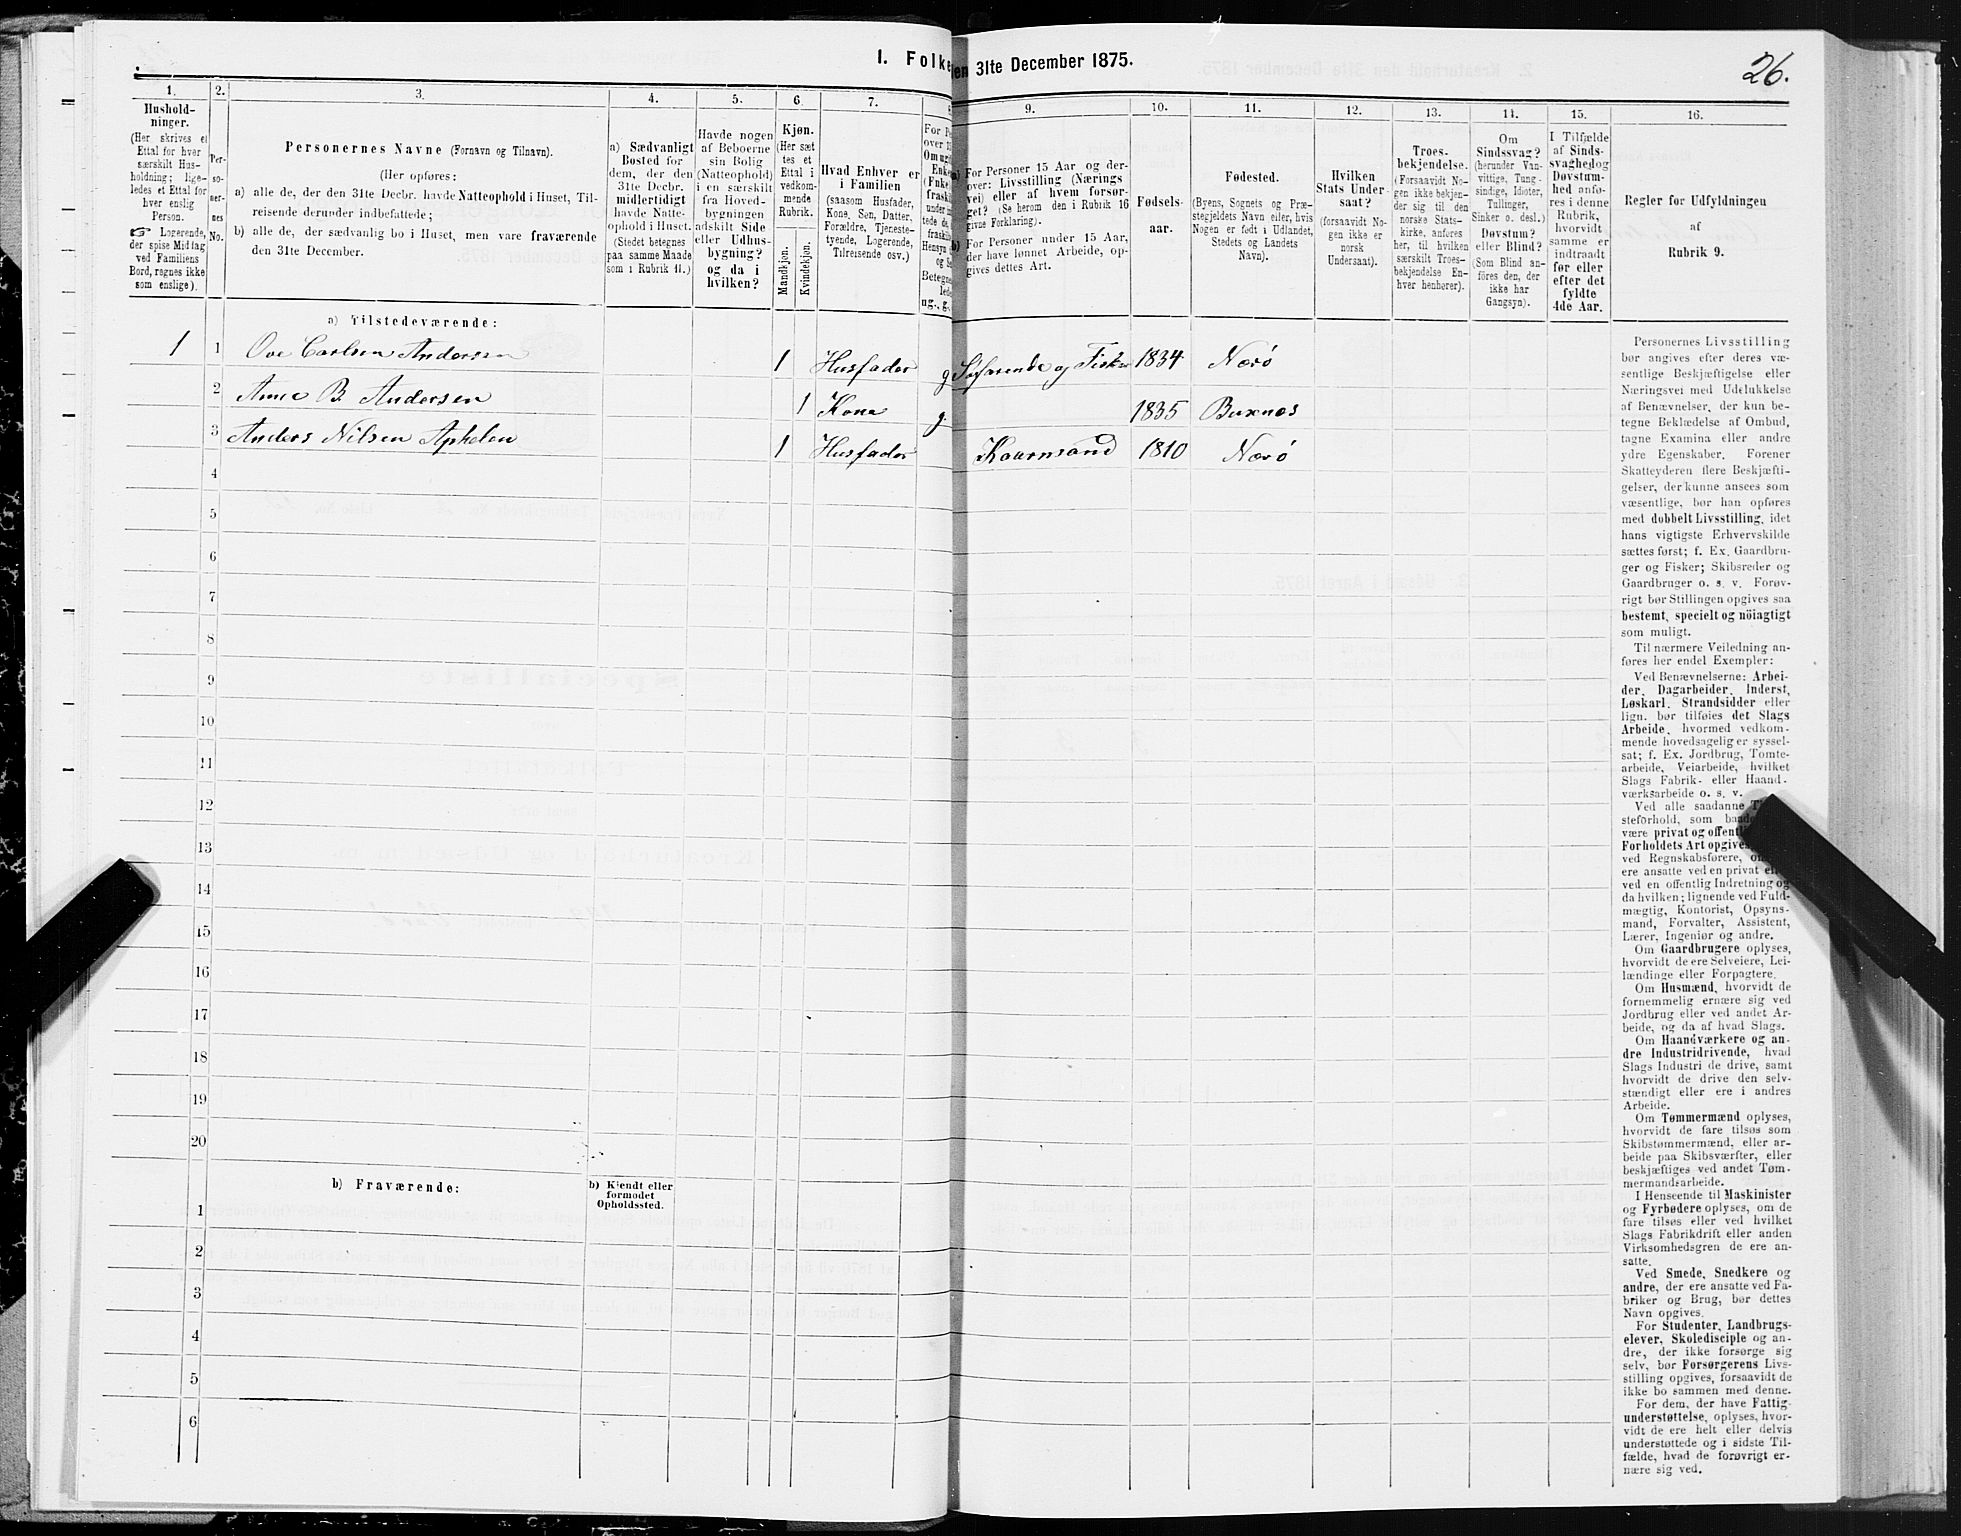 1. Folke
en 31te December 1875.
26.
1.
Hushold-
ninger.
(Her skrives et
Ettal for hver
særskilt Hus-
holdning; lige-
ledes et Ettal for
hver enslig
Person.
☞ Logerende,
der spise Middag
ved Familiens
Bord, regnes ikke
som enslige).
2.
Per-
so-
ner-
nes
No.
3.
Personernes Navne (Fornavn og Tilnavn).
(Her opføres:
a) alle de, der den 31te Decbr. havde Natteophold i Huset, Til-
reisende derunder indbefattede;
b) alle de, der sædvanlig bo i Huset, men vare fraværende
den 31te December.
4.
a) Sædvanligt
Bosted for
dem, der den
31te Decbr.
midlertidigt
havde Natte-
ophold i Huset.
(Stedet betegnes
paa samme Maade
som i Rubrik 11.)
5.
Havde nogen
af Beboerne
sin Bolig
(Natteophold)
i en særskilt
fra Hoved-
bygningen
adskilt Side
eller Udhus-
bygning?
og da i
hvilken?
6.
Kjøn.
(Her sæt
tes et
Ettal i
vedkom-
mende
Rubrik.
Mandkjøn.
Kvindekjøn.
7.
Hvad Enhver er
i Familien
(saasom Husfader,
Kone, Søn, Datter,
Forældre, Tjeneste-
tyende, Logerende,
Tilreisende osv.)
8
For Pe
over 1
Om ug
Enke
(Enke
frask
under
tede de
fraski
Hensyn
og S
Betegne
lede
ug., g.
9.
a) For Personer 15 Aar og der-
over: Livsstilling (Nærings-
vei) eller af hvem forsør-
get? (Se herom den i Rubrik 16
givne Forklaring).
b) For Personer under 15 Aar,
der have lønnet Arbeide, op-
gives dettes Art.
10.
Fødsels-
aar.
11.
Fødested.
(Byens, Sognets og Præ-
stegjeldets Navn eller, hvis
Nogen er født i Udlandet,
Stedets og Landets
Navn).
12.
Hvilken
Stats Under-
saat?
(forsaavidt No-
gen ikke er
norsk
Undersaat).
13.
Troes-
bekjendelse.
(Forsaavidt No-
gen ikke bekjen-
der sig til den
norske Stats-
kirke, anføres
her, til hvilken
særskilt Troes-
bekjendelse En-
hver henhører).
14.
Om
Sindssvag?
(herunder Van-
vittige, Tung-
sindige, Idioter,
Tullinger,
Sinker o. desl.)
Døvstum?
eller Blind?
(Som Blind an-
føres den, der
ikke har
Gangsyn).
15.
I Tilfælde
af Sinds-
svaghed og
Døvstum-
hed anfø-
res i denne
Rubrik,
hvorvidt
samme er
indtraadt
før eller
efter det
fyldte
4de Aar.
16.
Regler for Udfyldningen
af
Rubrik 9.
a) Tilstedeværende:
1 1 Ove Carlsen Andersen 1 Husfader g Søfarende og Fisker 1834 Nærø
2 Anne B. Andersen 1 Kone g. 1835 Buxnæs
3 Anders Nilsen Aphelen 1 Husfader Kaarmand 1810 Nærø
4
5
6
7
8
9
10
11
12
13
14
15
16
17
18
19
20
b) Fraværende:
b) Kjendt eller
formodet
Opholdssted.
1
2
3
4
5
6
Personernes Livsstilling
bør angives efter deres væ-
sentlige Beskjæftigelse eller
Næringsvei med Udelukkelse
af Benævnelser, der kun be-
tegne Beklædelse af Ombud,
tagne Examina eller andre
ydre Egenskaber. Forener
Skatteyderen flere Beskjæfti-
gelser, der kunne ansees som
væsentlige, bør han opføres
med dobbelt Livsstilling, idet
hans vigtigste Erhvervskilde
sættes først; f. Ex. Gaardbru-
ger og Fisker; Skibsreder og
Gaardbruger o. s. v. Forøv-
rigt bør Stillingen opgives saa
bestemt, specielt og nöiagtigt
som muligt.
Til nærmere Veiledning an-
føres her endel Exempler:
Ved Benævnelserne: Arbei-
der, Dagarbeider, Inderst,
Løskarl, Strandsidder eller
lign. bør tilføies det Slags
Arbeide, hvormed vedkom-
mende hovedsagelig er syssel-
sat; f. Ex. Jordbrug, Tomte-
arbeide, Veiarbeide, hvilket
Slags Fabrik- eller Haand-
værksarbeide o. s. v.
Ved alle saadanne T
steforhold, som baade
være privat og offentl
Forholdets Art opgives,
ved Regnskabsførere, om
ere ansatte ved en privat el
ved en offentlig Indretning og
da hvilken; lignende ved Fuld-
mægtig, Kontorist, Opsyns-
mand, Forvalter, Assistent,
Lærer, Ingeniør og andre.
Om Gaardbrugere oplyses,
hvorvidt de ere Selveiere, Lei-
lændinge eller Forpagtere.
Om Husmænd, hvorvidt de
fornemmelig ernære sig ved
Jordbrug eller ved andet Ar-
beide, og da af hvad Slags.
Om Haandværkere og an-
dre Industridrivende, hvad
Slags Industri de drive, samt
hvorvidt de drive den selv-
stændigt eller ere i andres
Arbeide.
Om Tømmermænd oplyses,
hvorvidt de fare tilsøs som
Skibstømmermænd, eller ar-
beide paa Skibsværfter, eller
beskjæftiges ved andet Tøm-
mermandsarbeide.
I Henseende til Maskinister
og Fyrbødere oplyses, om de
fare tilsøs eller ved hvilket
Slags Fabrikdrift eller anden
Virksomhedsgren de ere an-
satte.
Ved Smede, Snedkere og
andre, der ere ansatte ved Fa-
briker og Brug, bør dettes
Navn opgives.
For Studenter, Landbrugs-
elever, Skoledisciple og an-
dre, der ikke forsørge sig
selv, bør Forsørgerens Livs-
stilling opgives, forsaavidt de
ikke bo sammen med denne.
For dem, der have Fattig-
understøttelse, oplyses, hvor-
vidt de ere helt eller delvis
understøttede og i sidste Til-
fælde, hvad de forøvrigt er-
nære sig ved.